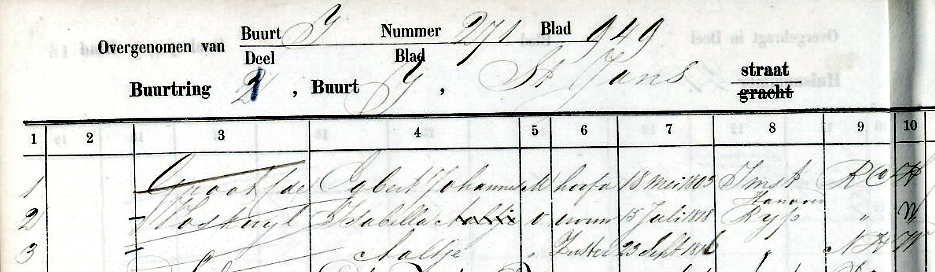 Overgenomen van Buurt Y Nummer 271 Blad 949
Deel Blad
Buurtring 2 , Buurt Y , St Jans straat gracht
1 2 3 4 5 6 7 8 9 10
1 Groot (de Egbert Johannes M hoofd 18 mei 1805 Amst R C H
2 Hoskuyl Isabella Aaltje v vrouw 15 Juli 1818 Ryp " W
3 Aaltje " Zuster 23 Sept 1816 " N H